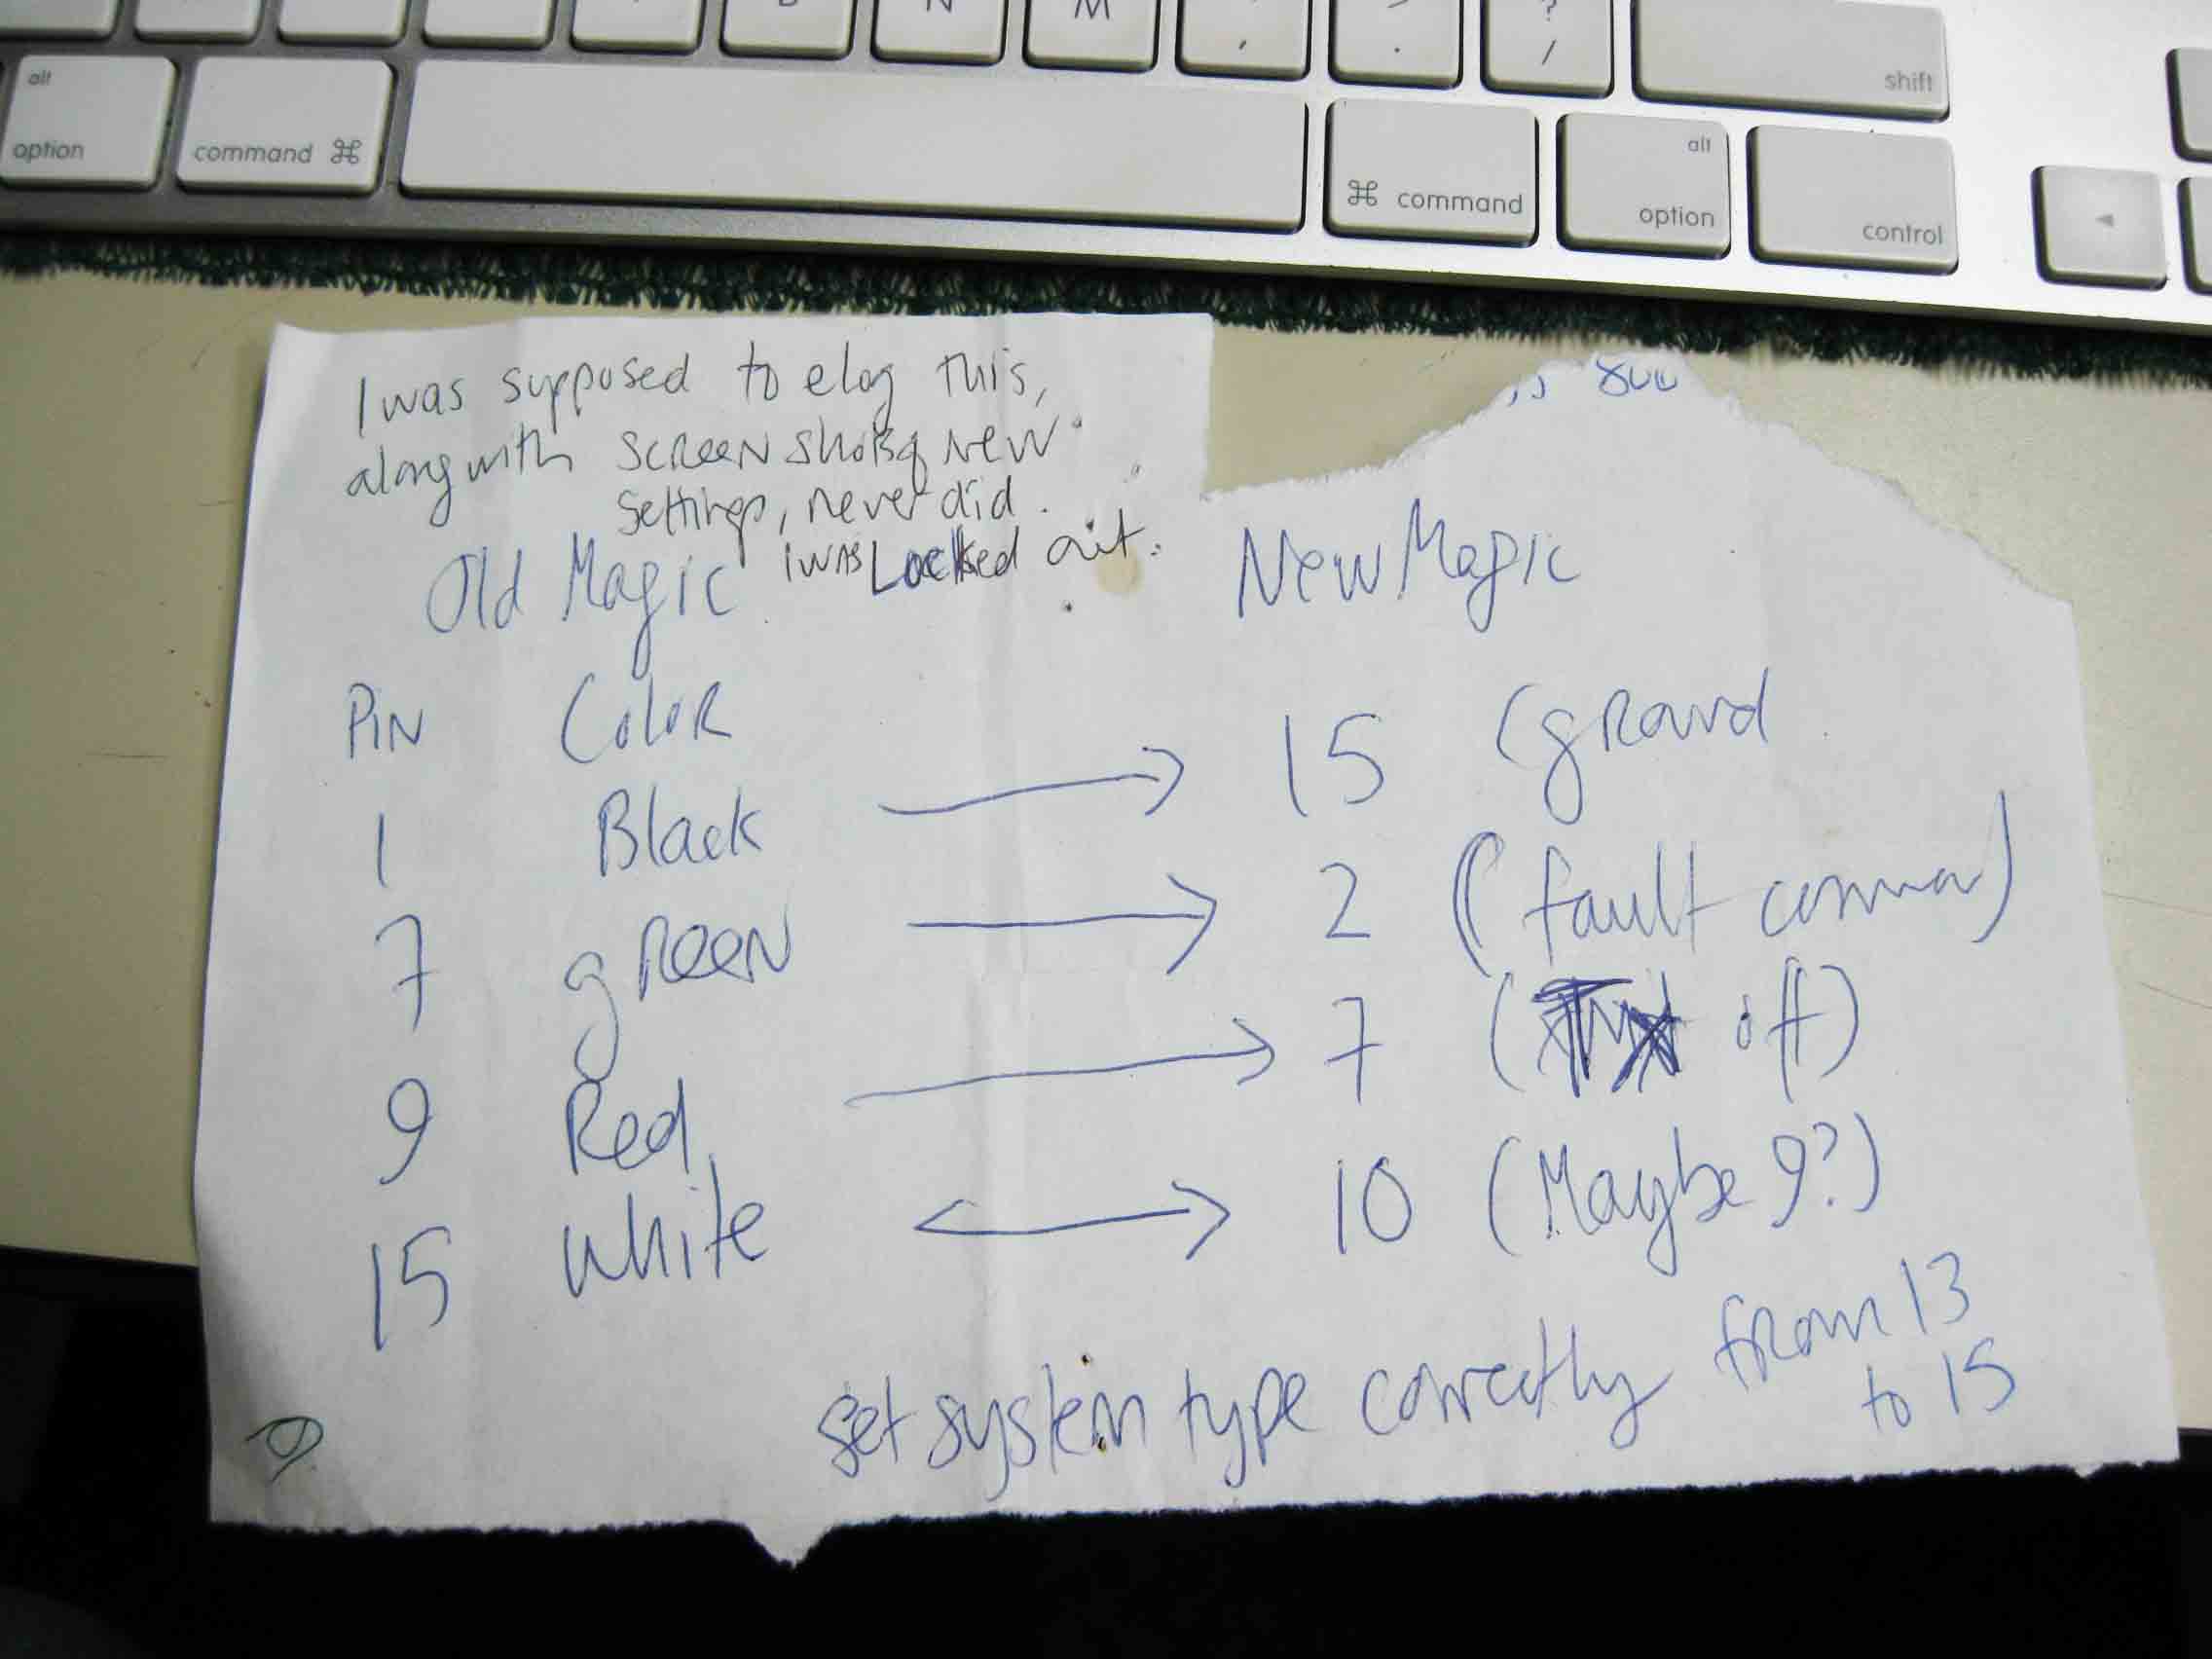 B N M < , > . ? /
alt option command ⌘ ⌘ command alt option control shift
◄
I was supposed to elog this,
along with screen shots of new
settings, never did.
I was Locked out.
800
Old Magic New Magic
Pin Color
1 Black → 15 (ground
7 green → 2 (fault common)
9 Red → 7 ( off)
15 white ↔ 10 (Maybe 9?)
set system type correctly from 13
to 15